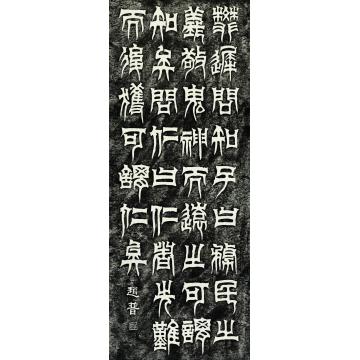 樊遲問知子曰務民之
義敬鬼神而遠之可謂
知矣問仁曰仁者先難
而後獲可謂仁矣
趙普